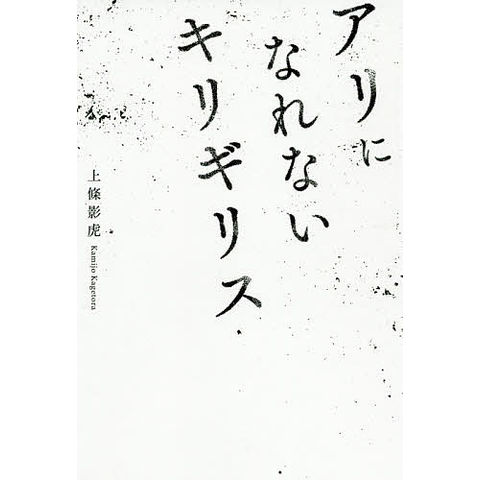 アリに
なれない
キリギリス
上條影虎
Kamijo Kagetora